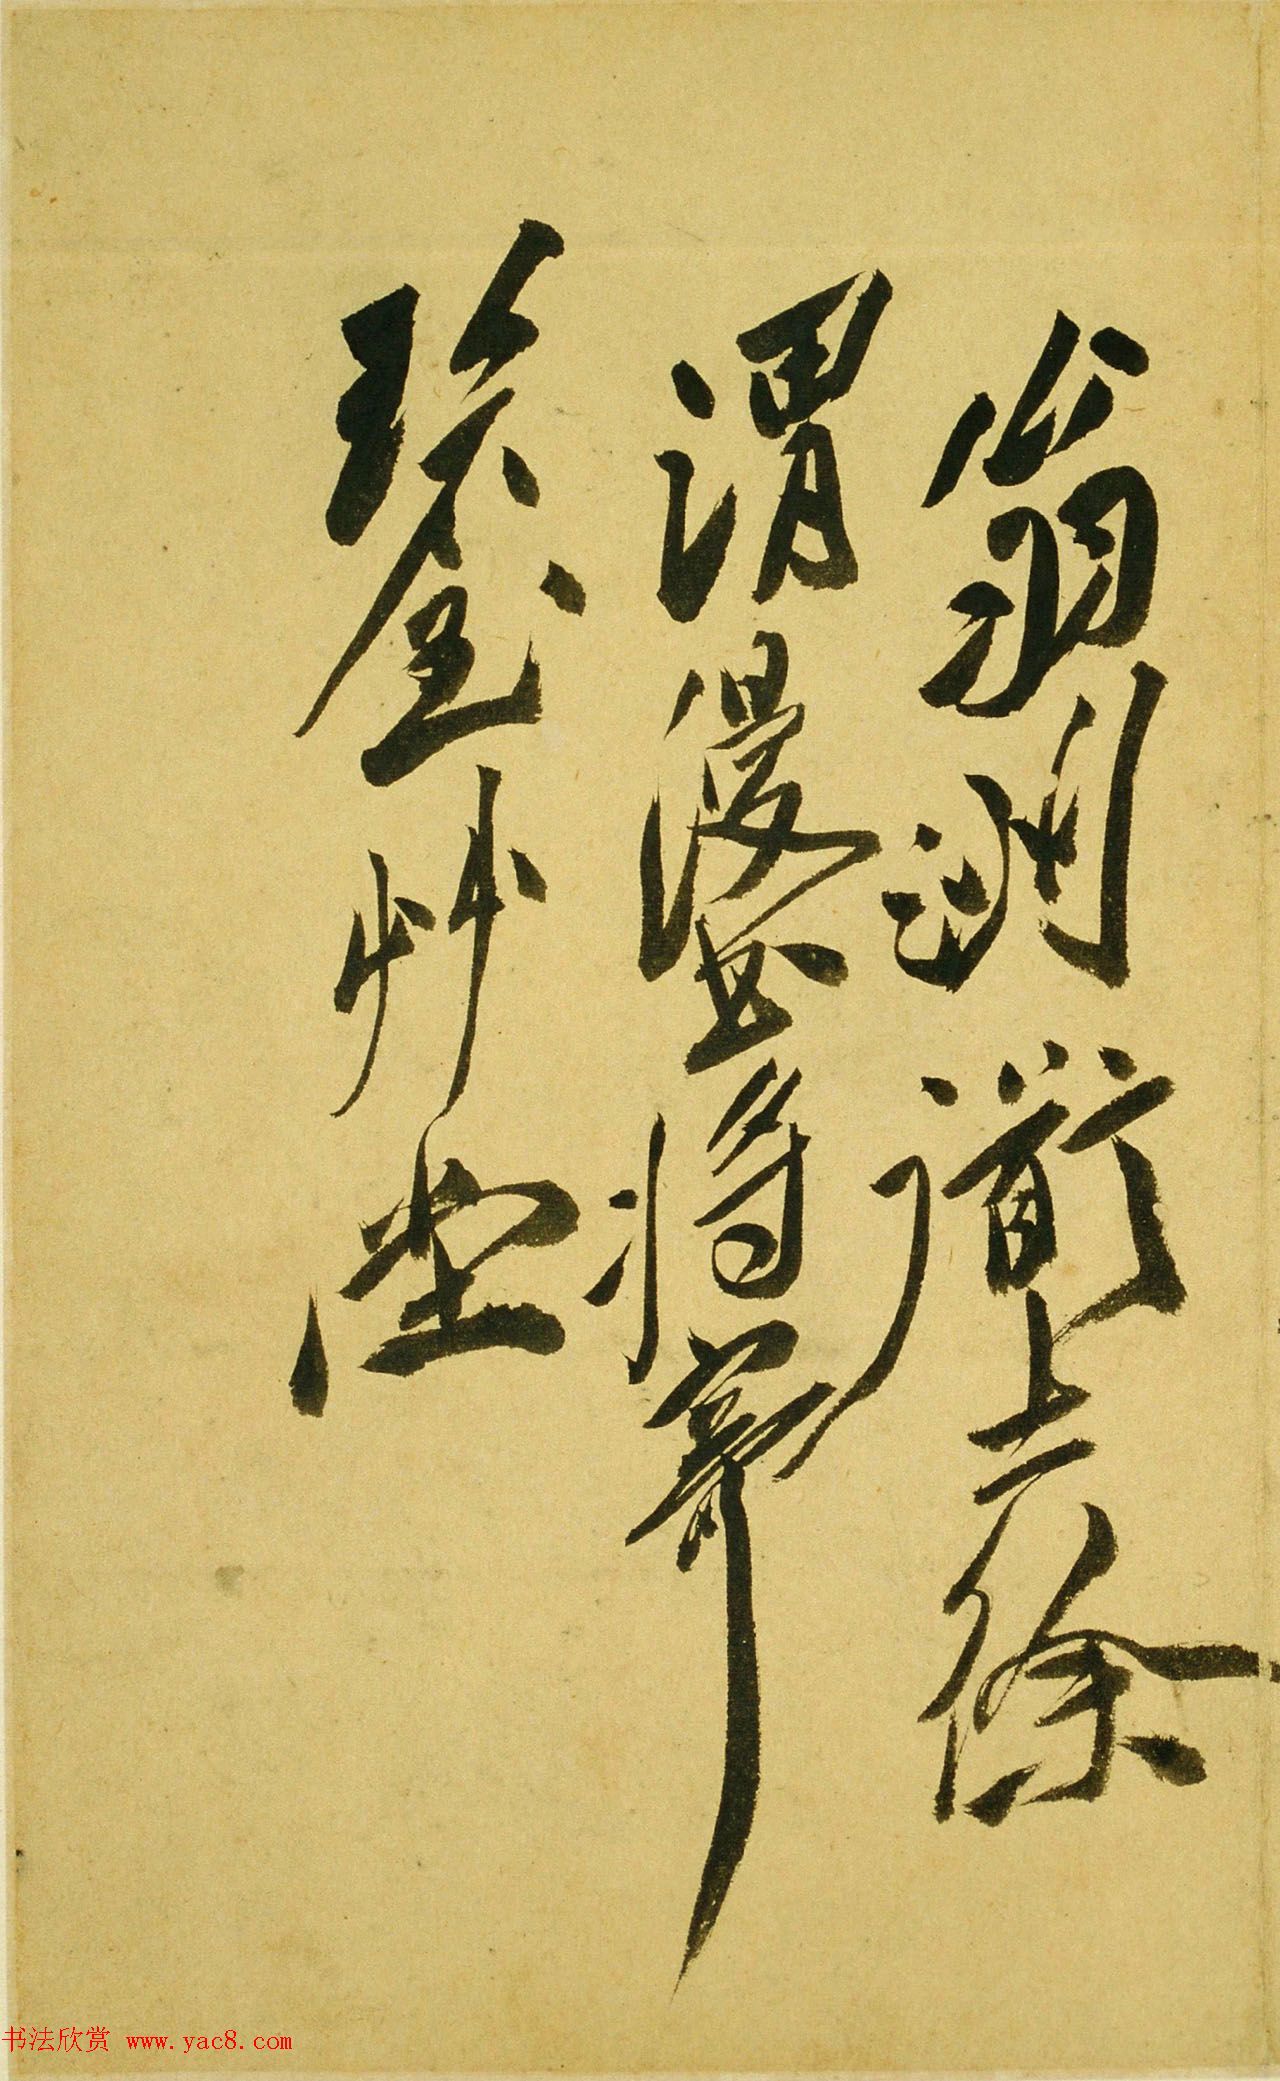 翁洲道上徐
渭漫書将
艸堂
书法欣赏 www.yac8.com